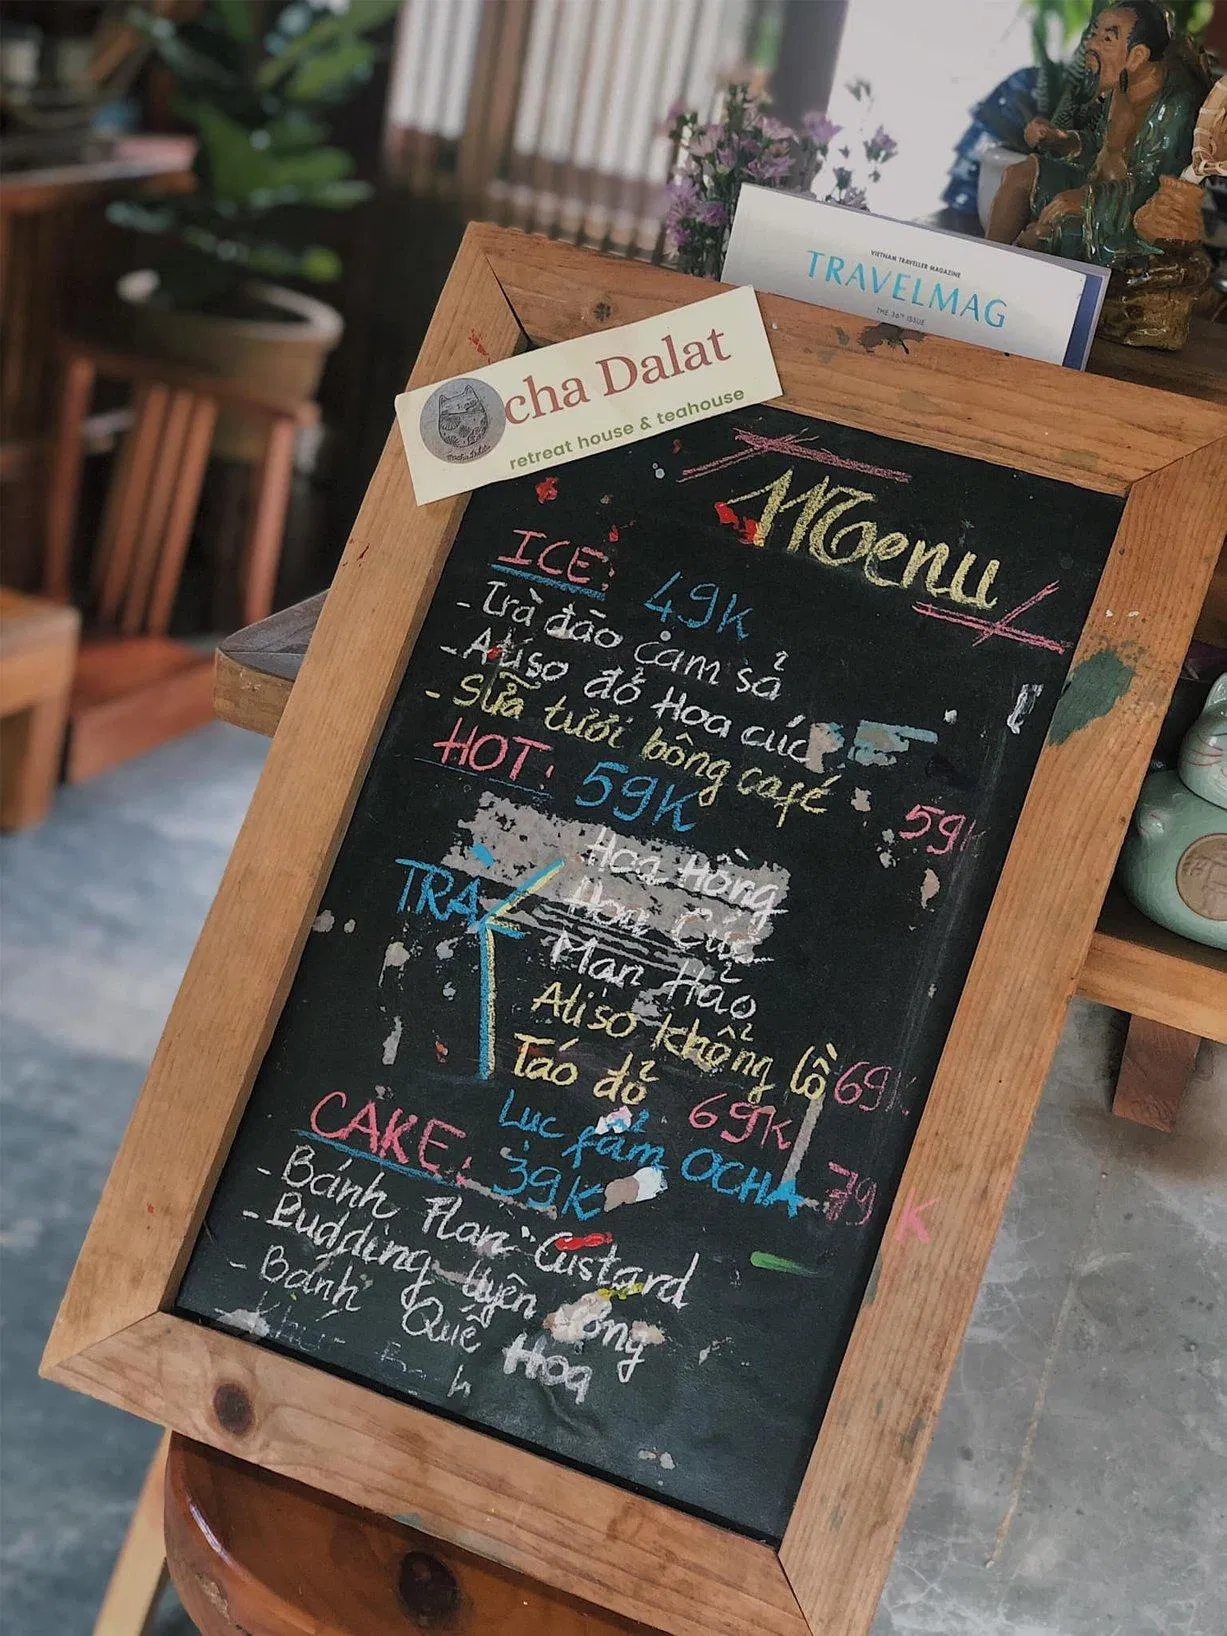 VIETNAM TRAVELLER MAGAZINE
TRAVELMAG
THE 36TH ISSUE
Ocha Dalat
retreat house & teahouse
Menu
ICE: 49K
- Trà đào cam sả
- Atiso đỏ Hoa cúc
- Sữa tươi bông café 59K
HOT: 59K
TRÀ
Hoa Hồng
Hoa Cúc
Mạn Hảo
Atiso khổng lồ 69K
Táo đỏ 69K
Lục phẩm OCHA 79K
CAKE: 39K
- Bánh Flan Custard
- Pudding Uyên Ương
- Bánh Quế Hoa